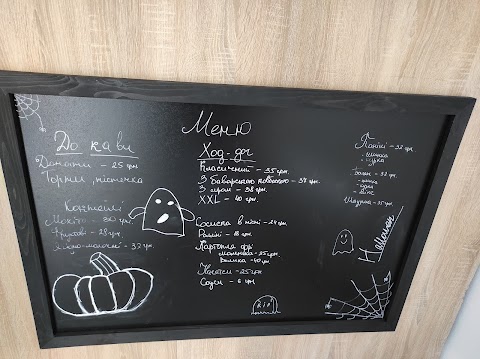 Меню
До кави
Донати - 25 грн
Тортик, тістечка
Коктейлі
Мохіто -
Фруктові - 28 грн
32 грн
Ход-дог
Класичний - 35 грн.
З баварською ковбасою - 37 грн
З сиром - 38 грн
XXL - 40 грн.
Сосиска в тісті - 24 грн
- 18 грн
Картопля фрі
Маленька - 25 грн.
Велика - 40 грн.
Нагетси - 25 грн
Соуси - 6 грн
Паніні - 32 грн
шинка
курка
- 32 грн
шинка
Шаурма - 75 грн
RIP